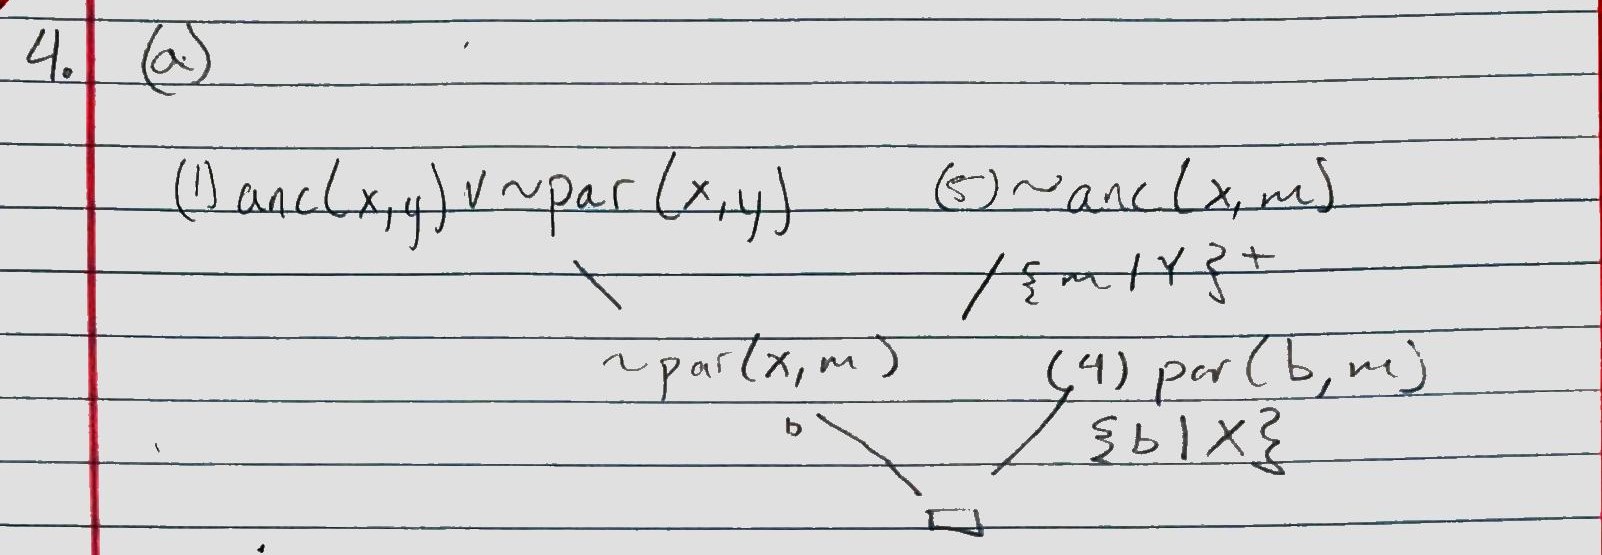 4. (a)
(1) anc(x,y) ∨ ~par(x,y) (5) ~anc(x,m)
{m/Y}+
~par(x,m) (4) par(b,m)
b {b|X}